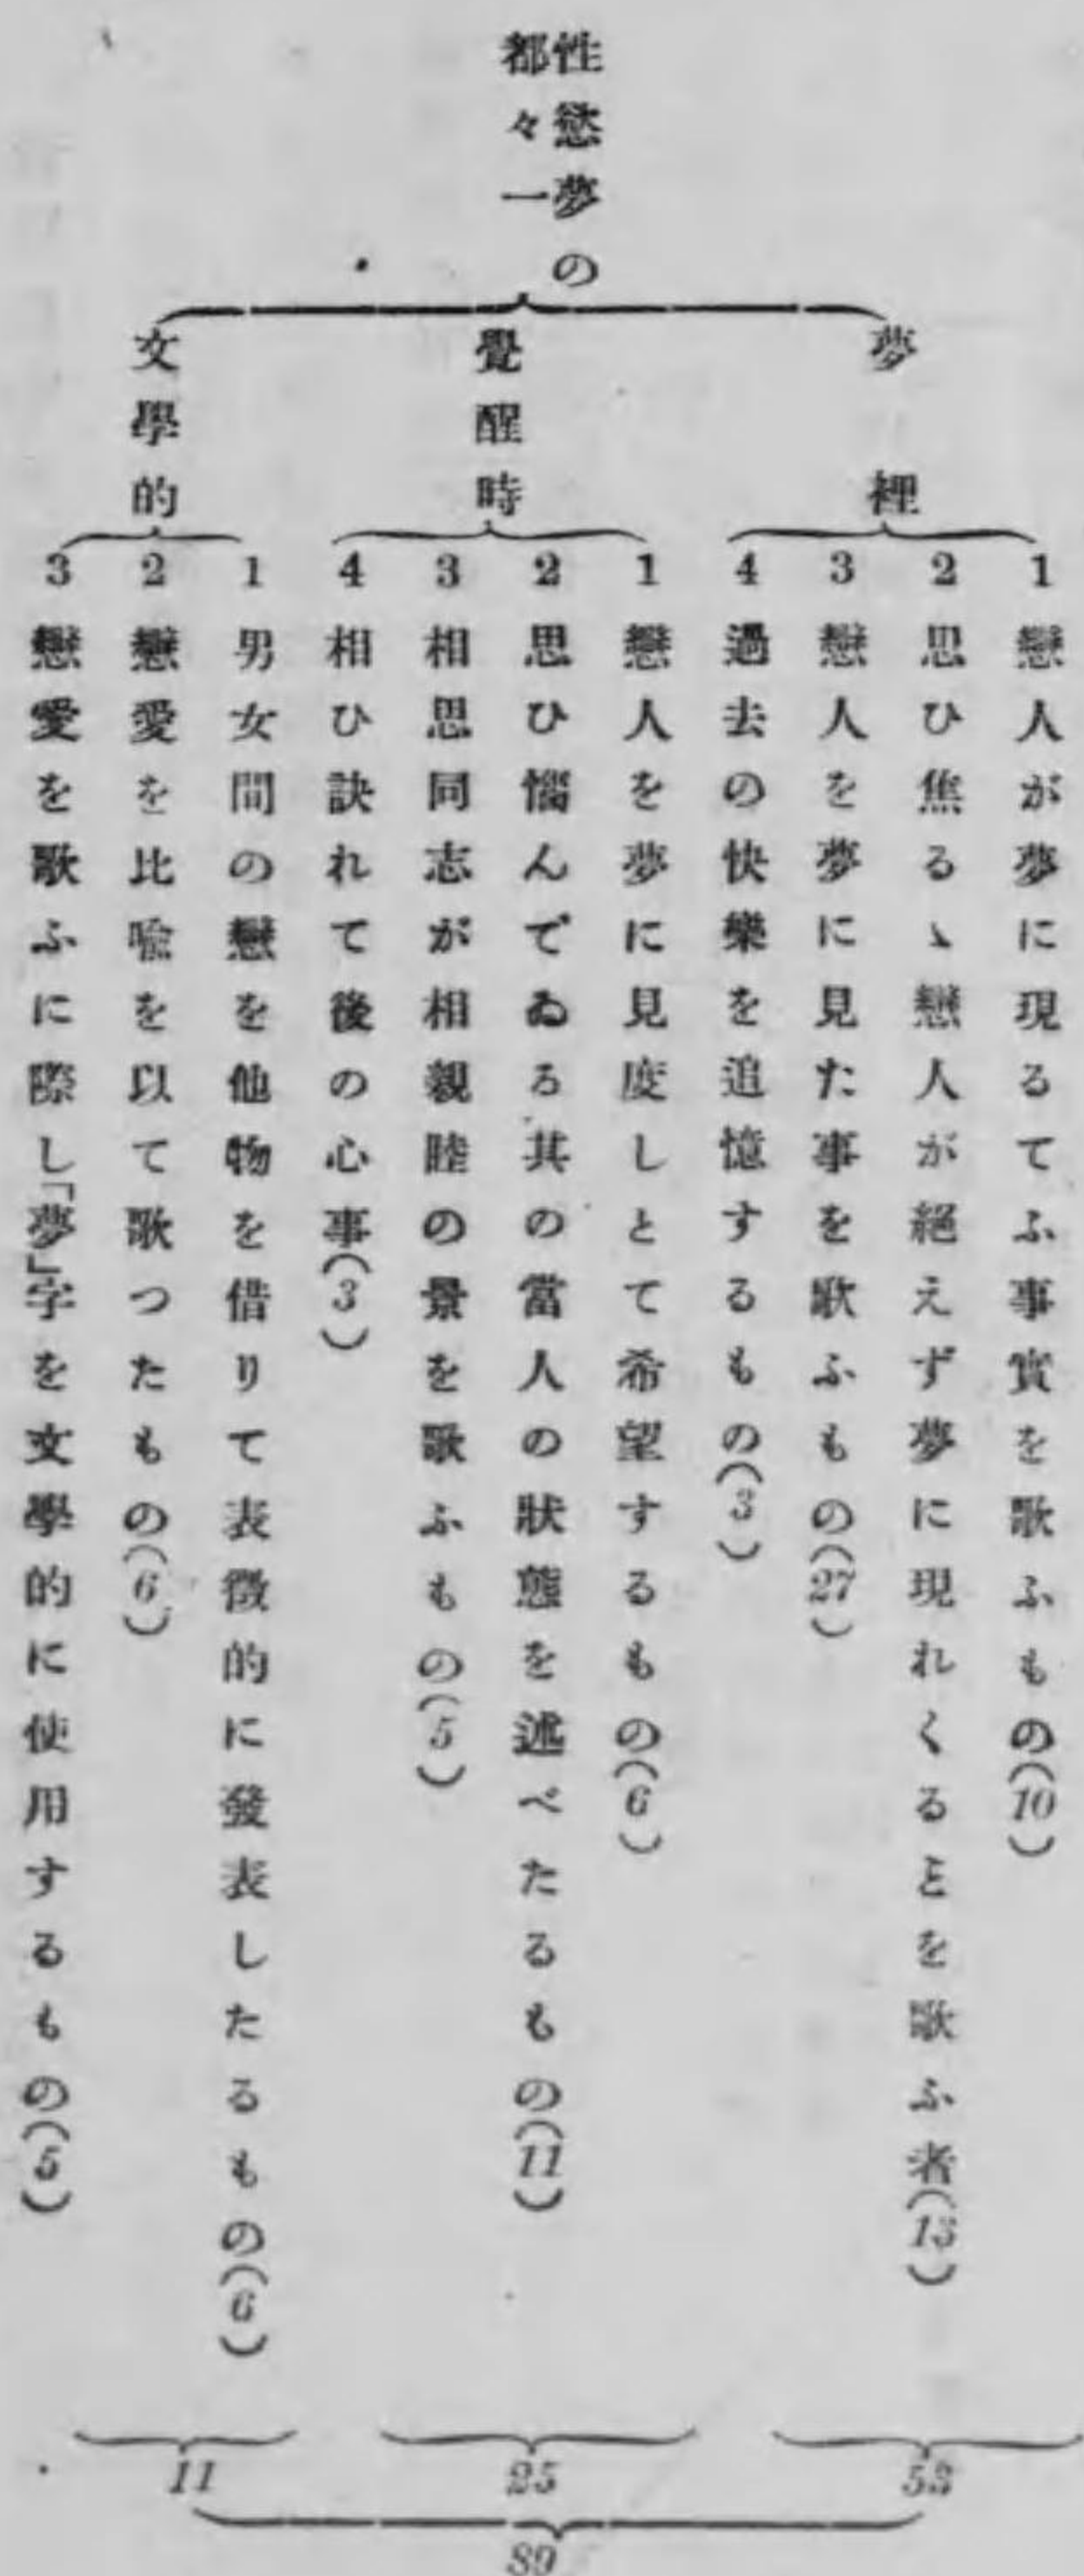 性慾夢の
都々一
夢裡
1 戀人が夢に現るてふ事實を歌ふもの(10)
2 思ひ焦るゝ戀人が絕えず夢に現れくるとを歌ふ者(13)
3 戀人を夢に見た事を歌ふもの(27)
4 過去の快樂を追憶するもの(3)
覺醒時
1 戀人を夢に見度しとて希望するもの(6)
2 思ひ惱んでゐる其の當人の狀態を述べたるもの(11)
3 相思同志が相親睦の景を歌ふもの(5)
4 相ひ訣れて後の心事(3)
文學的
1 男女間の戀を他物を借りて表徵的に發表したるもの(6)
2 戀愛を比喩を以て歌つたもの(6)
3 戀愛を歌ふに際し「夢」字を文學的に使用するもの(5)
53
25
11
89